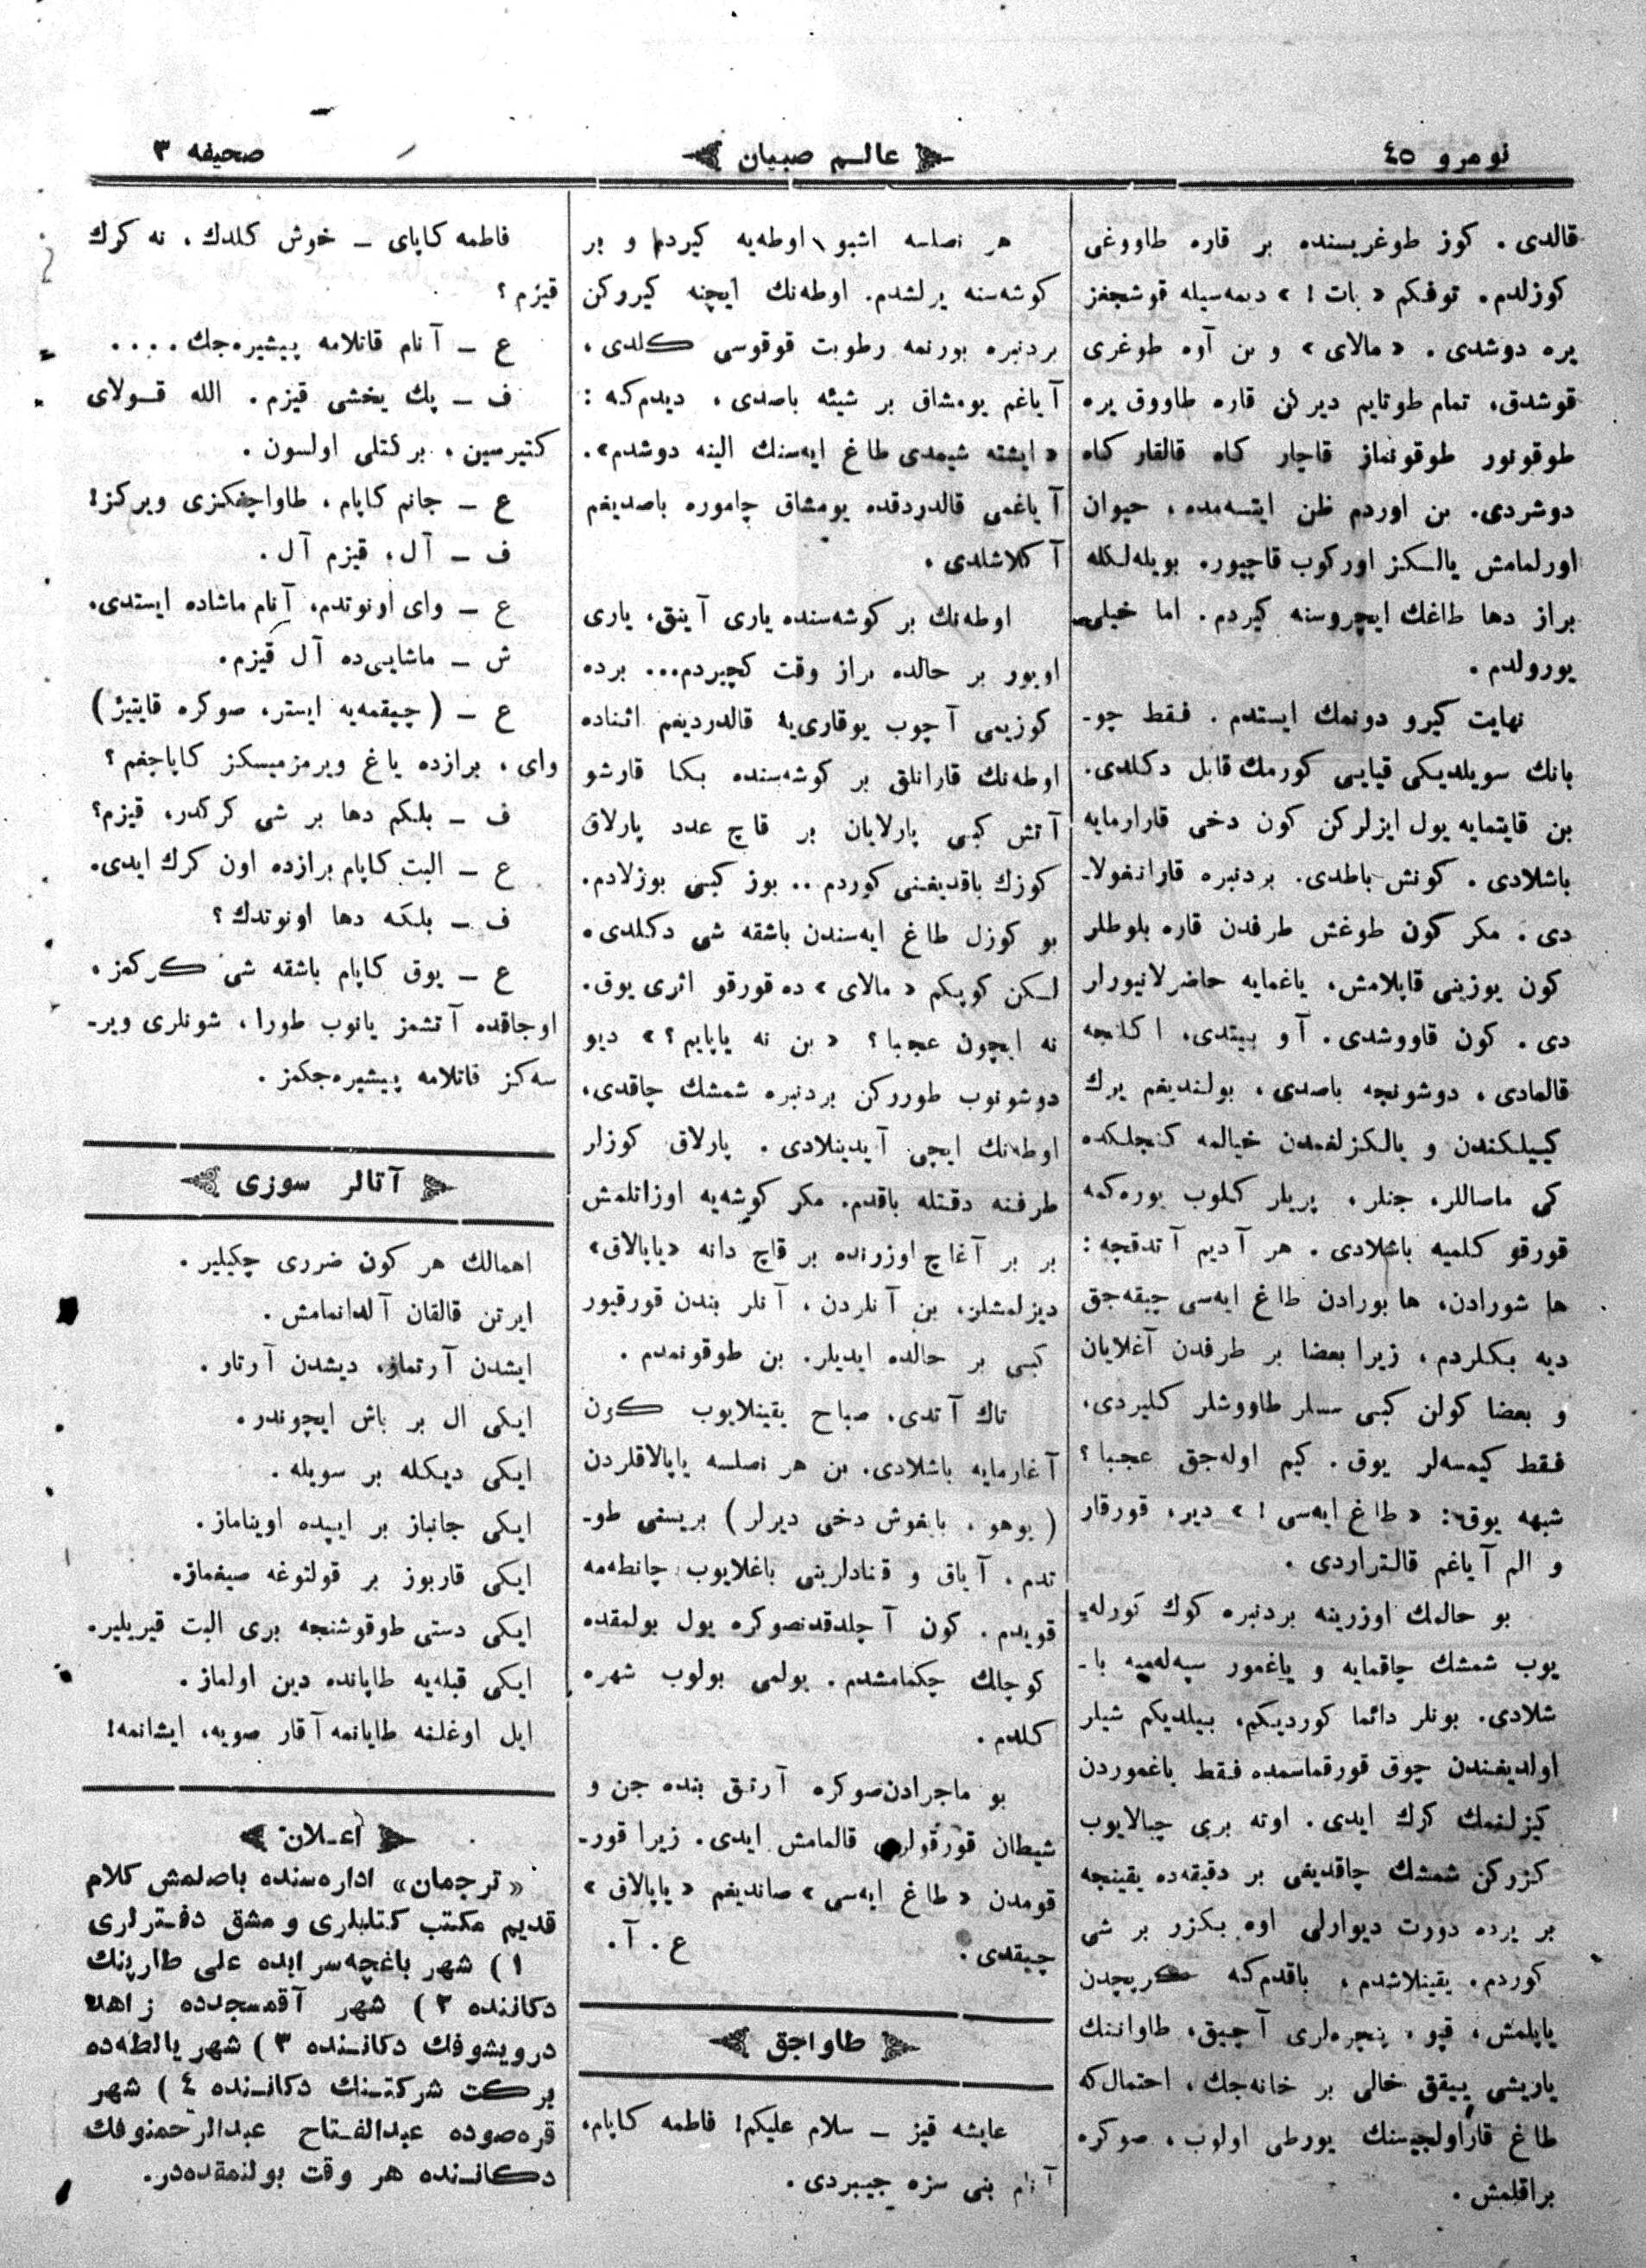 نومرو ٤٥
عالم صبيان
صحيفه ٣
قالدى . كوز طوغريسنده بر قاره طاووغى
كوزلدم. توفكم « بات ! » ديمه‌سيله قوشجغز
يره دوشدى . « مالاى » و بن آوه طوغرى
قوشدق، تمام طوتايم ديركن قاره طاووق يره
طوقونور طوقونماز قاچار كاه قالقار كاه
دوشردى. بن اوردم ظن ايتسه‌مده ، حيوان
اورلمامش يالـكز اوركوب قاچيور. بويله‌لكله
براز دها طاغك ايچروسنه كيردم. اما خيلى
يورولدم .
نهايت كيرو دونمك ايستدم . فقط چو-
بانك سويلديكى قيايى كورمك قابل دكلدى.
بن قايتمايه يول ايزلركن كون دخى قارارمايه
باشلادى . كونش باطدى. بردنبره قارانغولا-
دى . مكر كون طوغش طرفدن قاره بلوطلر
كون يوزينى قاپلامش، ياغمايه حاضرلانيورلر
دى . كون قاووشدى. آو بيتدى، اكلنجه
قالمادى ، دوشونجه باصدى ، بولنديغم يرك
كييلكندن و يالكزلغمدن خيالمه كنجلكده
كى ماصاللر، جنلر، پريلر كلوب يوره‌كمه
قورقو كلميه باشلادى . هر آديم آتدقچه :
ها شورادن، ها بورادن طاغ ايه‌سى چيقه‌جق
ديه بكلردم ، زيرا بعضا بر طرفدن آغلايان
و بعضا كولن كبى سسلر طاووشلر كليردى،
فقط كيمسه‌لر يوق . كيم اوله‌جق عجبا ؟
شبهه يوق: « طاغ ايه‌سى ! » دير، قورقار
و الم آياغم قالتراردى .
بو حالمك اوزرينه بردنبره كوك كورله-
يوب شمشك چاقمايه و ياغمور سپه‌لميه با-
شلادى. بونلر دائما كورديكم، بيلديكم شيلر
اولديغندن چوق قورقماسمده فقط ياغموردن
كيزلنمك كرك ايدى. اوته برى چبالايوب
كزركن شمشك چاقديغى بر دقيقه‌ده يقينجه
بر يرده دورت ديوارلى اوه بكزر بر شى
كوردم. يقينلاشدم ، باقدم كه كريچدن
ياپلمش، قپو ، پنچره‌لرى آچيق، طاواننك
ياريسى ييقق خالى بر خانه‌جك ، احتمال كه
طاغ قاراولجيسنك يورطى اولوب ، صوكره
براقلمش .
هر نصلسه اشبو اوطه‌يه كيردم و بر
كوشه‌سنه يرلشدم. اوطه‌نك ايچنه كيروركن
بردنبره بورنمه رطوبت قوقوسى كلدى،
آياغم يومشاق بر شيئه باصدى ، ديدم كه :
« ايشته شيمدى طاغ ايه‌سنك الينه دوشدم».
آياغمى قالدردقده يومشاق چاموره باصديغم
آكلاشلدى .
اوطه‌نك بر كوشه‌سنده يارى آينق، يارى
اويور بر حالده براز وقت كچيردم... برده
كوزيمى آچوب يوقارى‌يه قالدرديغم اثناده
اوطه‌نك قارانلق بر كوشه‌سنده بكا قارشو
آتش كبى پارلايان بر قاچ عدد پارلاق
كوزك باقديغنى كوردم .. بوز كبى بوزلادم.
بو كوزل طاغ ايه‌سندن باشقه شى دكلدى.
لـكن كوپكم « مالاى » ده قورقو اثرى يوق.
نه ايچون عجبا ؟ « بن نه ياپايم ؟ » ديو
دوشونوب طورركن بردنبره شمشك چاقدى،
اوطه‌نك ايچى آيدينلادى . پارلاق كوزلر
طرفنه دقتله باقدم. مكر كوشه‌يه اوزاتلمش
بر بر آغاچ اوزرنده بر قاچ دانه «ياپالاق»
ديزلمشلر، بن آنلردن ، آنلر بندن قورقيور
كبى بر حالده ايديلر. بن طوقونمدم .
تاك آتدى. صباح يقينلايوب كون
آغارمايه باشلادى. بن هر نصلسه ياپالاقلردن
( يوهو ، بايغوش دخى ديرلر ) بريسنى طو-
تدم . آياق و قنادلرينى باغلايوب چانطه‌مه
قويدم . كون آچلدقدنصوكره يول بولمقده
كوچلك چكمامشدم . يولمى بولوب شهره
كلدم .
بو ماجرادن‌صوكره آرتق بنده جن و
شيطان قورقولرى قالمامش ايدى. زيرا قور-
قومدن « طاغ ايه‌سى » صانديغم « ياپالاق »
چيقدى .
ع . آ .
طاواجق
عايشه قيز – سلام عليكم! فاطمه كاپام،
آنام بنى سزه جيبردى .
فاطمه كاپاى – خوش كلدك ، نه كرك
قيزم ؟
ع – آنام قاتلامه پيشيره‌جك ....
ف – پك يخشى قيزم . الله قولاى
كتيرسين ، بركتلى اولسون .
ع – جانم كاپام ، طاواچغكزى ويركز!
ف – آل ، قيزم آل .
ع – واى اونوتدم، آنام ماشاده ايستدى.
ش – ماشايى‌ده آل قيزم.
ع – ( چيقمه‌يه ايستر، صوكره قايتير )
واى ، برازده ياغ ويرمزميسكز كاپاجغم ؟
ف – بلكم دها بر شى كركدر، قيزم؟
ع – البت كاپام برازده اون كرك ايدى.
ف – بلكه دها اونوتدك ؟
ع – يوق كاپام باشقه شى كركمز ،
اوجاقده آتشمز يانوب طورا ، شونلرى وير-
سه‌كز قاتلامه پيشيره‌جكمز .
آتالر سوزى
اهمالك هر كون ضررى چكيلير .
ايرتن قالقان آلدانمامش .
ايشدن آرتماز، ديشدن آرتار .
ايكى ال بر باش ايچوندر .
ايكى ديكله بر سويله .
ايكى جانباز بر ايپده اويناماز.
ايكى قاربوز بر قولتوغه صيغماز.
ايكى دستى طوقوشنجه برى البت قيريلير.
ايكى قبله‌يه طاپانده دين اولماز .
ايل اوغلنه طايانمه آقار صويه، ايشانمه!
اعـلان
«ترجمان» اداره‌سنده باصلمش كلام
قديم مكتب كتابلرى و مشق دفترلرى
١ ) شهر باغچه‌سرايده على طارپنك
دكاننده ٢ ) شهر آقمسجدده زاهد
درويشوفك دكانـنده ٣ ) شهر يالطه‌ده
بركت شركتـنك دكانـنده ٤ ) شهر
قره‌صوده عبدالفـتاح عبدالرحمنوفك
دكانـنده هر وقت بولنمقده‌در.